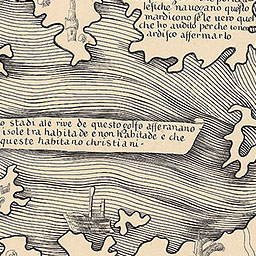 lesiche navegano questo
mardicono se le vero quel
che ho audito perche io no
ardisco affermarlo
o stadi ale rive de questo colfo afferanano
isole tra habitade e non habitade e che
queste habitano christiani.